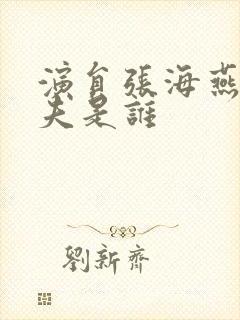 演員張海燕
夫是誰
劉新齊